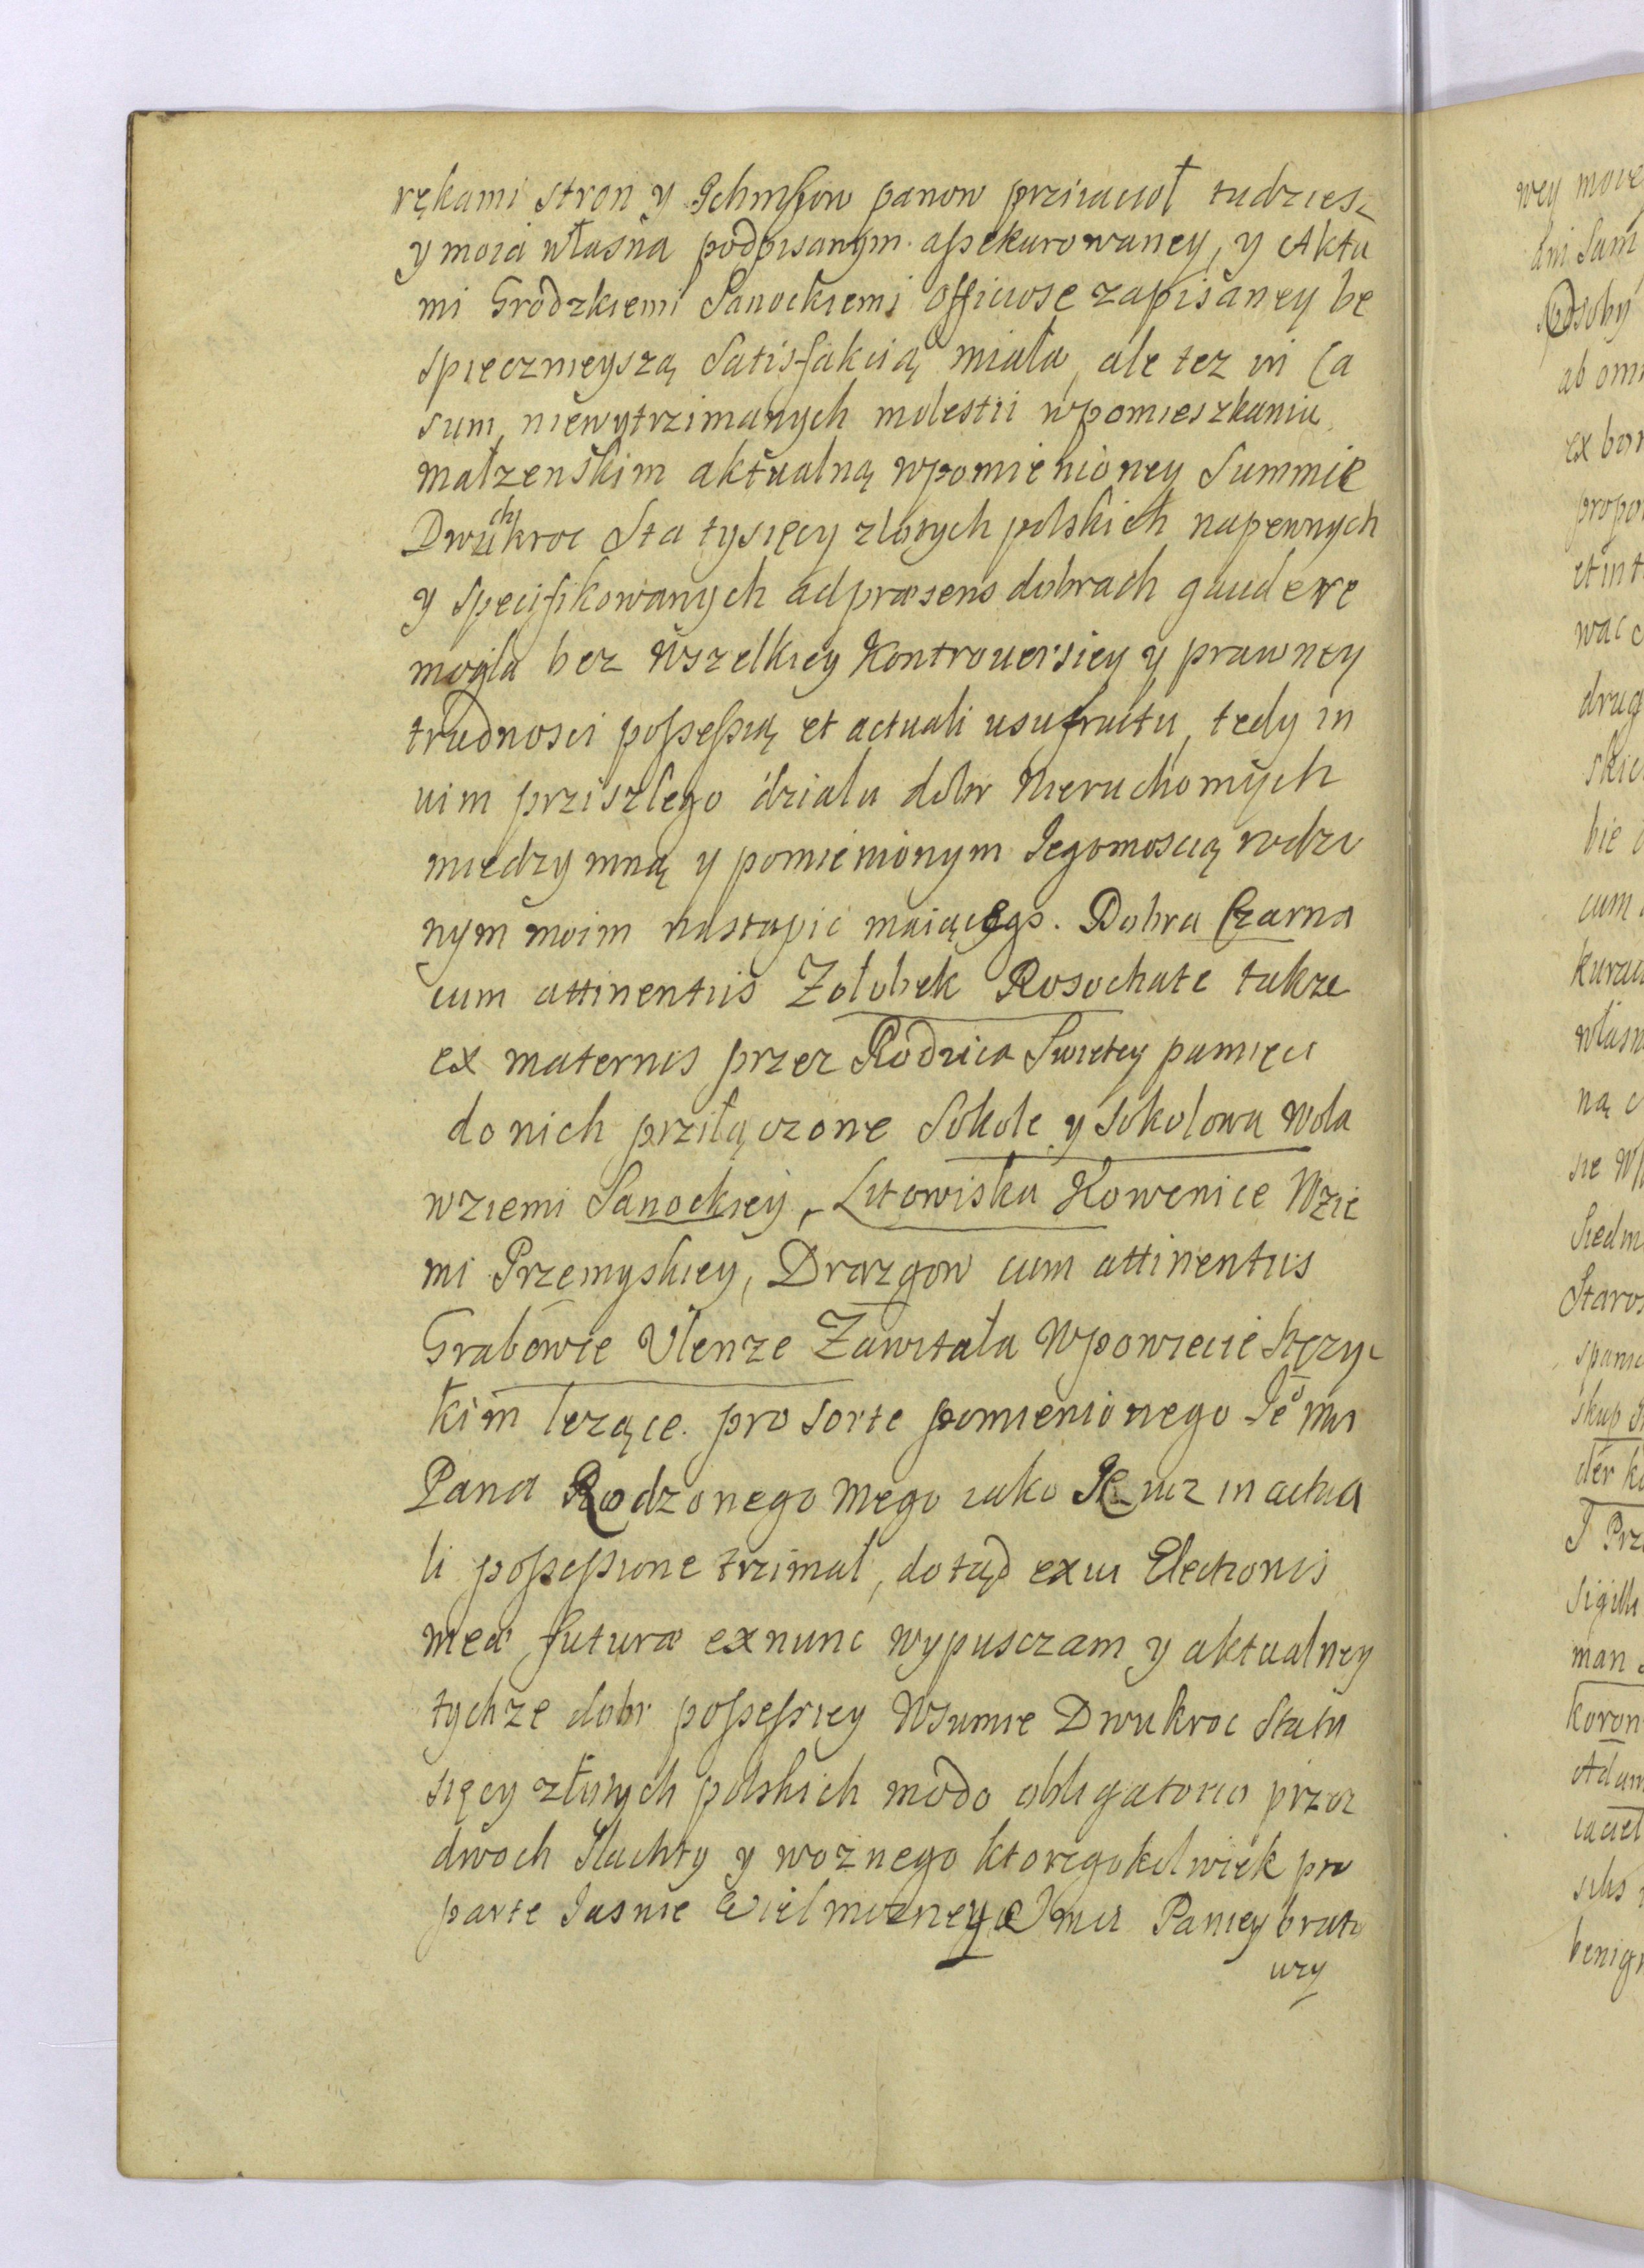 rękami stron y Ichmsow panow prziiacioł tudziesz
y moia własna podpisanym assekurowaney, y Akta
mi Grodzkiemi Sanockiemi officiose zapisaney be
spiecznieyszą Satisfakcią miała, ale tez in Ca
sum niewytrzimanych molestii wpomieszkaniu
małzenskim aktualną wpomienioney Summie
Dwuchkroc Sta tysięcy złotych polskich napewnych
y specifikowanych adpræsens dobrach gaudere
mogła bez wszelkiey Kontrouersiey y prawney
trudnosci possessią et actuali usufructu, tedy in
uim prziszlego działu dobr Nieruchomych
miedzy mną y pomienionym Jegomoscią rodzo
nym moim nastapić maiącego. Dobra Czarna
cum attinentiis Zołobek Rosochate takze
ex maternis przez Rodzica Swietey pamięci
do nich prziłączone Sokole y Sokolowa Wola
wziemi Sanockiey, Lutowiska Howenice Wzie
mi Przemyskiey, Drazgow cum attinentiis
Grabowie Ulenze Zawitała Wpowiecie Stęzyc
kim lezące. pro sorte pomienionego Je° Mci
Pana Rodzonego Mego iako Je mcz in actua
li possessione trzimał, dotąd exui Electionis
meæ futuræ exnunc wypusczam y aktualney
tychze dobr possessiey Wsumie Dwukroc Staty
sięcy złotych polskich modo obligatorio przez
dwoch Slachty y woznego ktoregokolwiek pro
parte Jasnie Wielmozney Pamiey brato
wzy
wey
ani Sam
Osoby
ab om
ex bon
propo
et int
wac
drug
skie
bie
cum
kurau
własn
ną
sie
Siedm
Staros
spanie
skup
der
J Prz
sigillu
man
koron
Adam
iaciel
benign